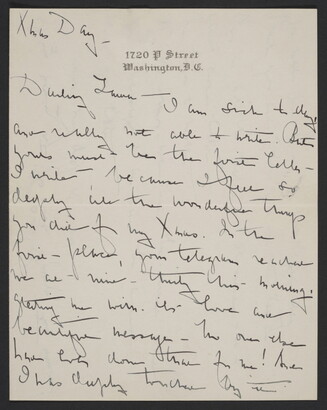 Xmas Day —
1720 P Street
Washington, D.C.
Darling Laura — I am sick to-day,
and really not able to write. But
yours must be the first letter —
I write — because I feel so
deeply all the wonderful things
you did for my Xmas. In the
first — place, your telegram reached
me at — nine — thirty this — morning,
greeting me with its love and
beautiful message — No one else
have ever done that for me! And
I was deeply touched by it